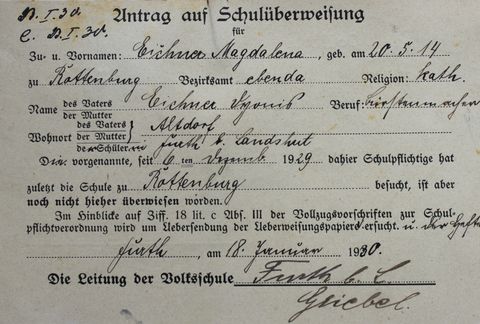 B. I. 30.
E. B. I. 30.
Antrag auf Schulüberweisung
für
Zu- u. Vornamen: Eichner Magdalena, geb. am 20. 5. 14
zu Rottenburg Bezirksamt ebenda Religion: kath.
Name des Vaters der Mutter Eichner Dyonis Beruf: Bürstenmacher
Wohnort des Vaters der Mutter Altdorf
des Schülers Furth b. Landshut
Die vorgenannte, seit 6 ten Dezemb. 1929 dahier Schulpflichtige hat
zuletzt die Schule zu Rottenburg besucht, ist aber
noch nicht hieher überwiesen worden.
Im Hinblicke auf Ziff. 18 lit. c Abs. III der Vollzugsvorschriften zur Schul-
pflichtverordnung wird um Uebersendung der Ueberweisungspapiere ersucht. u. der Hefte
Furth, am 18. Januar 1930.
Die Leitung der Volksschule Furth b. L.
Griebel.